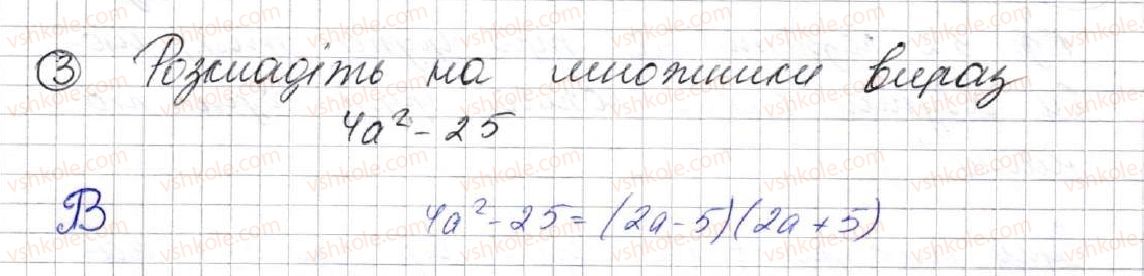 ③ Розкладіть на множники вираз
4a² - 25
В 4a² - 25 = (2a - 5)(2a + 5)